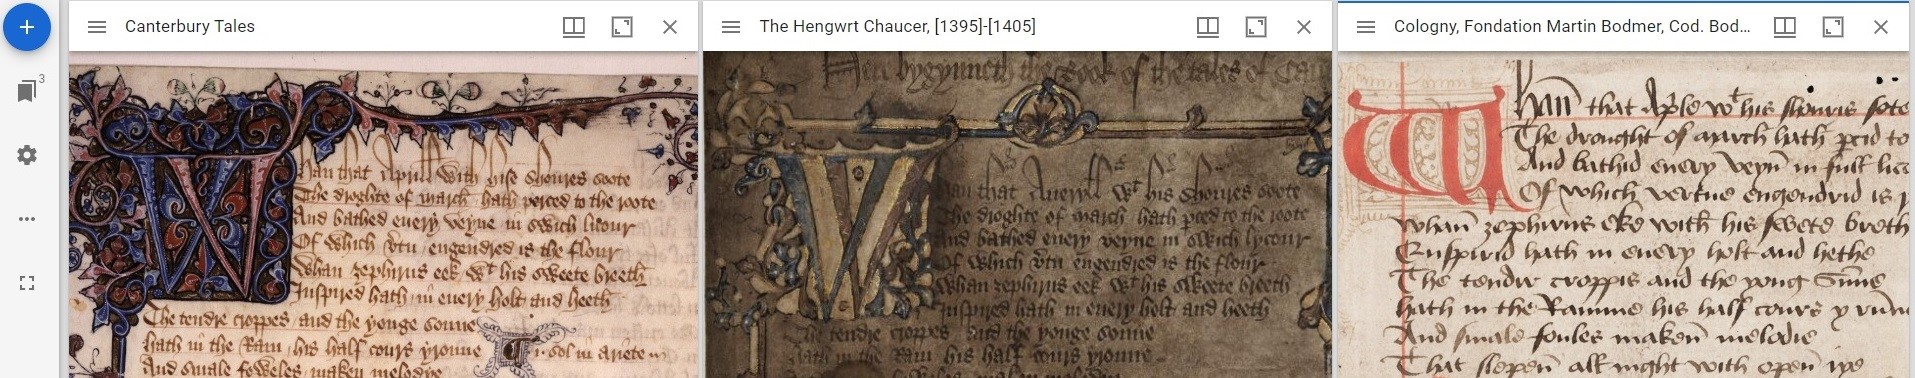 3
Canterbury Tales
Whan that Aprill with hise shoures soote
The droghte of march hath perced to the roote
And bathed euery veyne in swich licour
Of which vtu engendred is the flour
Whan zephirus eek wt his sweete breeth
Inspired hath in euery holt and heeth
The tendre croppes and the yonge sonne
hath in the Ram his half cours yronne
And smale foweles maken melodye
The Hengwrt Chaucer, [1395]-[1405]
bygynneth the book of the tales of
Whan that Aueryll wt his shoures soote
The droghte of march hath pced to the roote
And bathed euery veyne in swich lycour
Of which vtu engendred is the flour
Whan zephirus eek wt his sweete breeth
Inspired hath in euery holt and heeth
The tendre croppes and the yonge sonne
hath in the Ram his half cours yronne
Cologny, Fondation Martin Bodmer, Cod. Bod...
Whan that Aple wt his shouris sote
The drought of march hath pcid to
And bathid euery veyn in full
Of which vertue engendrid is
Whan zephirus eke with his swete breth
Enspirid hath in euery holt and hethe
The tendir croppis and the yong Sunne
hath in the Ramme his half cours y
And smale foules maken melodie
That slepen all night with open iye